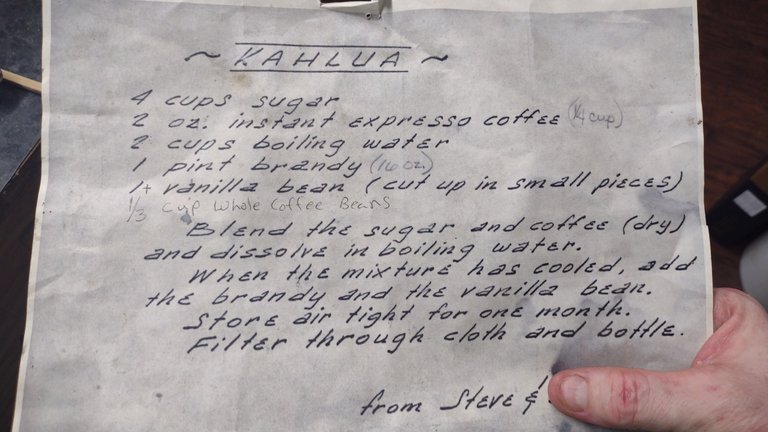 ~ KAHLUA ~
4 cups sugar
2 oz. instant expresso coffee (1/4 cup)
2 cups boiling water
1 pint brandy (16 oz)
1+ vanilla bean (cut up in small pieces)
1/3 cup whole coffee Beans
Blend the sugar and coffee (dry)
and dissolve in boiling water.
When the mixture has cooled, add
the brandy and the vanilla bean.
Store air tight for one month.
Filter through cloth and bottle.
from Steve &